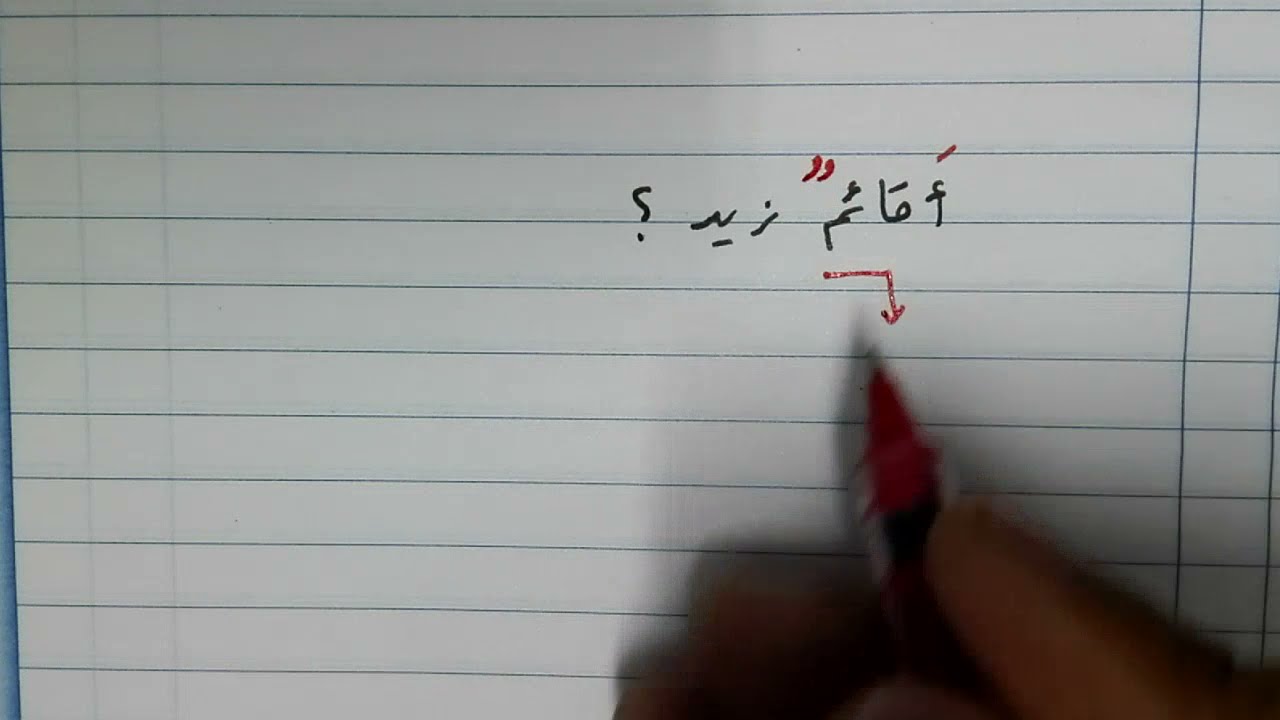 أَقائمٌ زيد ؟